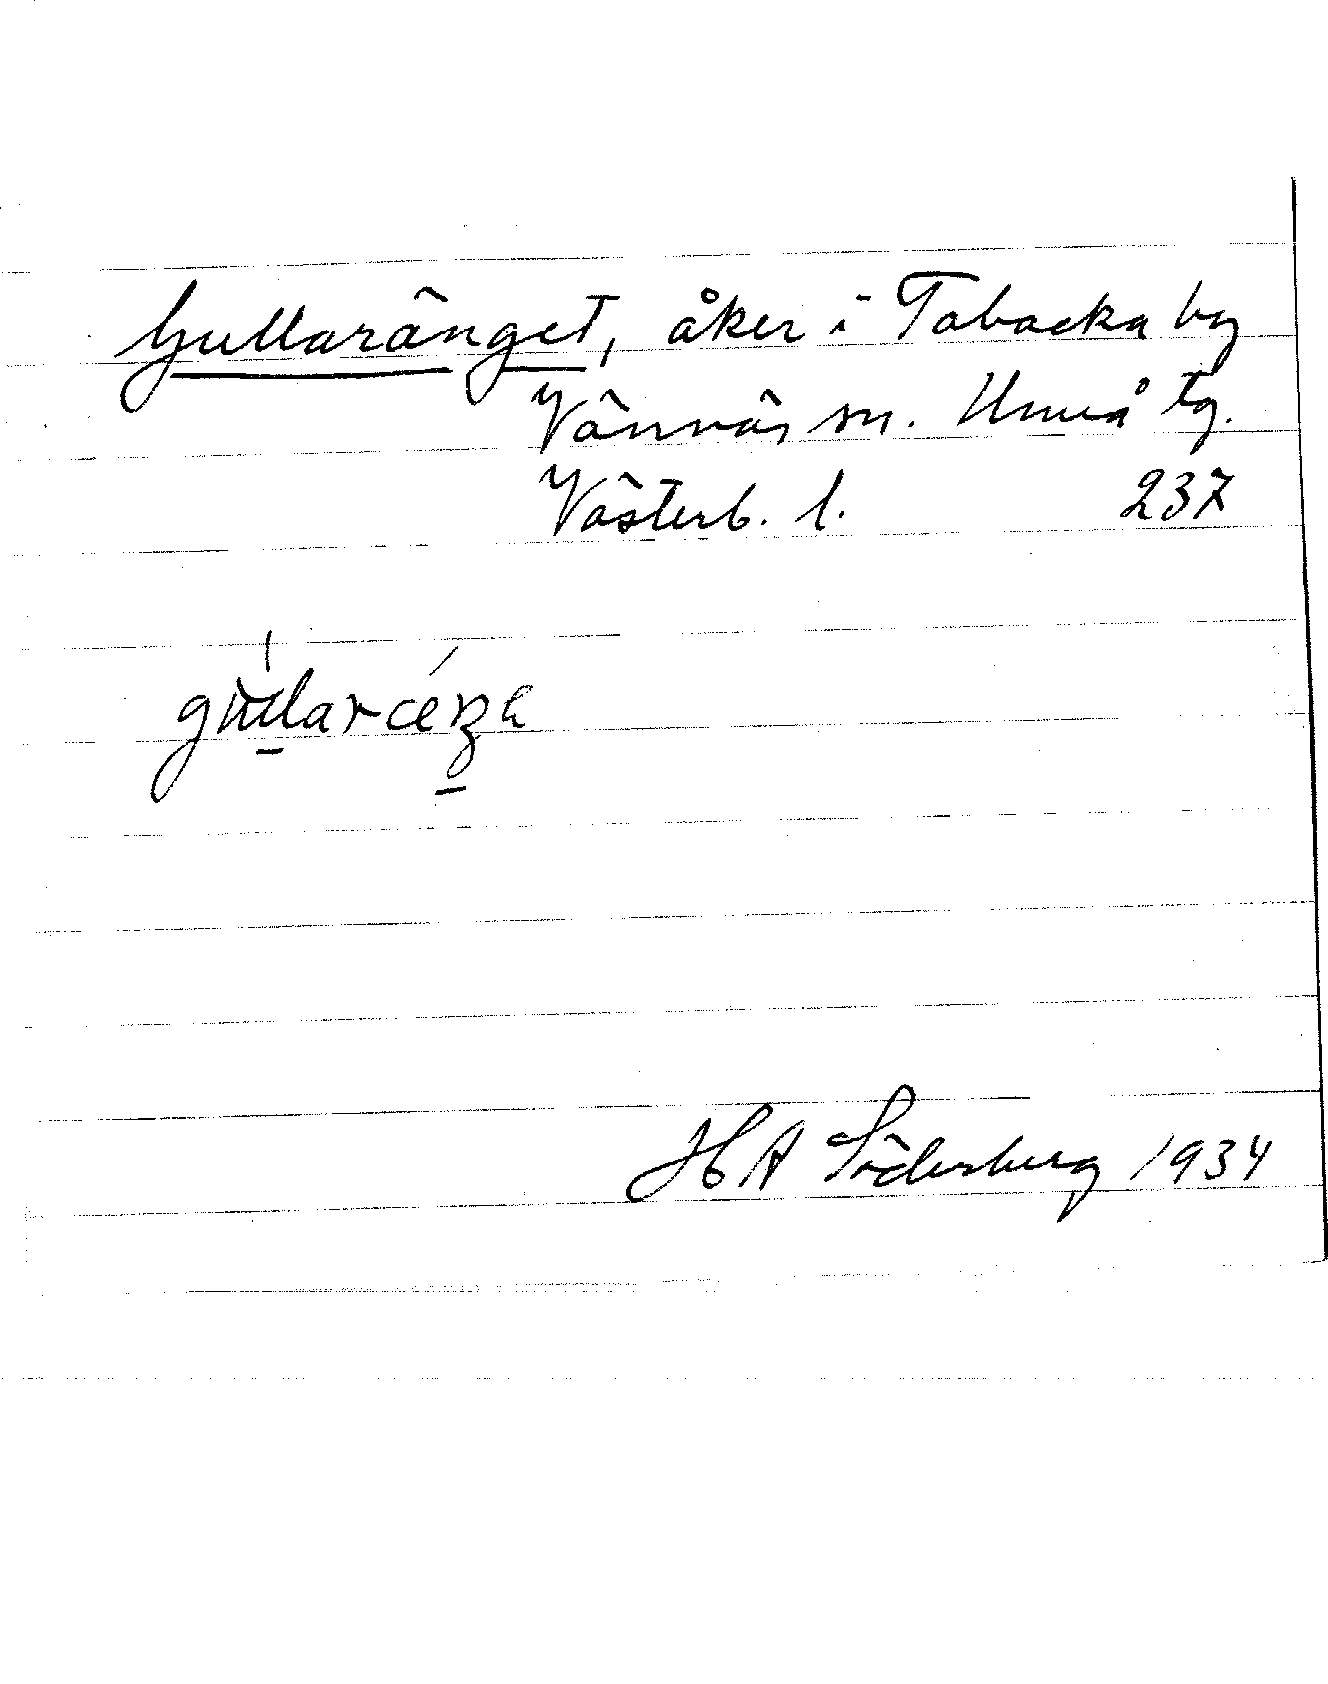 Gullaränget, åker i Tobacka by
Vännäs sn. Umeå tg.
Västerb. l. 237
HA Söderberg 1934